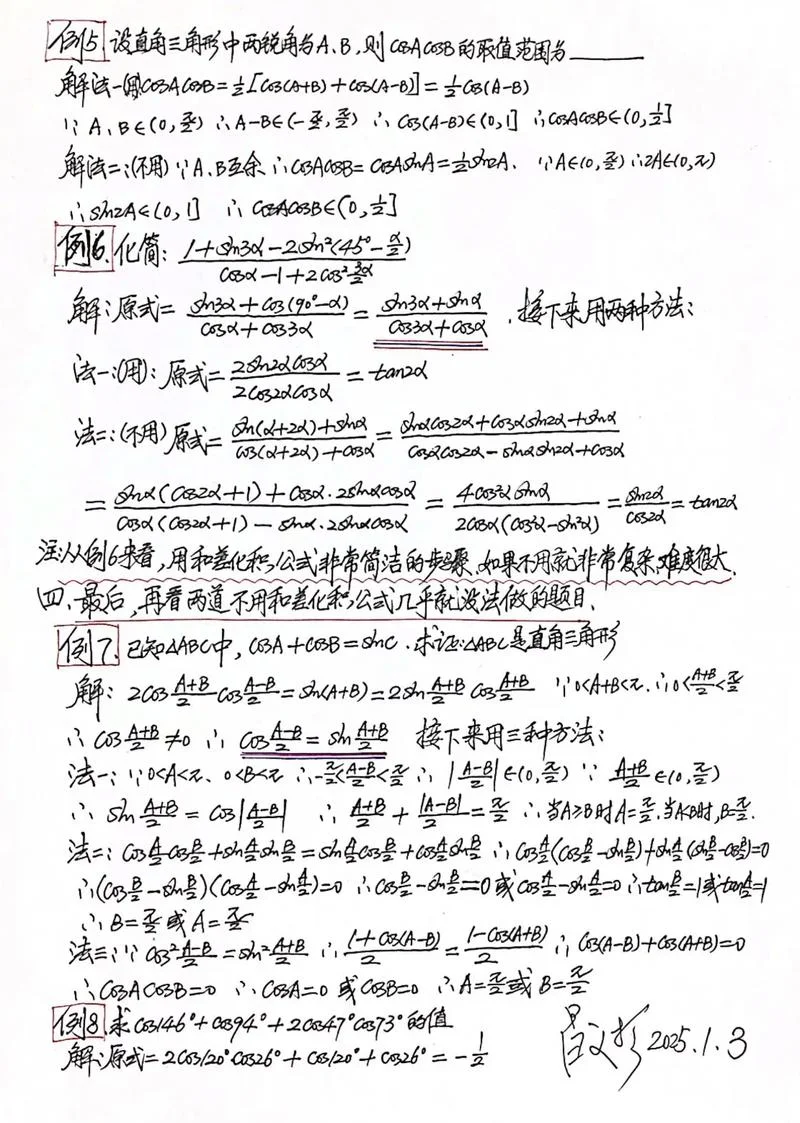 例5.设直角三角形中两锐角为A、B,则cosAcosB的取值范围为______
解法一:(用)cosAcosB=½[cos(A+B)+cos(A-B)]=½cos(A-B)
∵A、B∈(0,π/2) ∴A-B∈(-π/2,π/2) ∴cos(A-B)∈(0,1] ∴cosAcosB∈(0,½]
解法二:(不用)∵A、B互余∴cosAcosB=cosAsinA=½sin2A. ∵A∈(0,π/2)∴2A∈(0,π)
∴sin2A∈(0,1] ∴cosAcosB∈(0,½]
例6.化简:(1+sin3α-2sin²(45°-α/2))/(cosα-1+2cos²(3α/2))
解:原式=(sin3α+cos(90°-α))/(cosα+cos3α)=(sin3α+sinα)/(cos3α+cosα).接下来用两种方法:
法一:(用):原式=(2sin2αcosα)/(2cos2αcosα)=tan2α
法二:(不用)原式=(sin(α+2α)+sinα)/(cos(α+2α)+cosα)=(sinαcos2α+cosαsin2α+sinα)/(cosαcos2α-sinαsin2α+cosα)
=(sinα(cos2α+1)+cosα·2sinαcosα)/(cosα(cos2α+1)-sinα·2sinαcosα)=(4cos²αsinα)/(2cosα(cos²α-sin²α))=sin2α/cos2α=tan2α
注:从例6来看,用和差化积公式非常简洁的步骤,如果不用就非常复杂,难度很大.
四、最后,再看两道不用和差化积公式几乎就没法做的题目.
例7.已知△ABC中,cosA+cosB=sinC.求证:△ABC是直角三角形
解:2cos(A+B)/2 cos(A-B)/2=sin(A+B)=2sin(A+B)/2 cos(A+B)/2 ∵0<A+B<π.∴0<(A+B)/2<π/2
∴cos(A+B)/2≠0 ∴cos(A-B)/2=sin(A+B)/2 接下来用三种方法:
法一:∵0<A<π、0<B<π∴-π/2<(A-B)/2<π/2∴|(A-B)/2|∈(0,π/2)∵(A+B)/2∈(0,π/2)
∴sin(A+B)/2=cos|(A-B)/2| ∴(A+B)/2+|A-B|/2=π/2∴当A≥B时A=π/2,当A<B时,B=π/2.
法二:cosA/2cosB/2+sinA/2sinB/2=sinA/2cosB/2+cosA/2sinB/2∴cosA/2(cosB/2-sinB/2)+sinA/2(sinB/2-cosB/2)=0
∴(cosB/2-sinB/2)(cosA/2-sinA/2)=0∴cosB/2-sinB/2=0或cosA/2-sinA/2=0∴tanB/2=1或tanA/2=1
∴B=π/2或A=π/2
法三:∵cos²(A-B)/2=sin²(A+B)/2∴(1+cos(A-B))/2=(1-cos(A+B))/2∴cos(A-B)+cos(A+B)=0
∴cosAcosB=0∴cosA=0或cosB=0∴A=π/2或B=π/2
例8.求cos146°+cos94°+2cos47°cos73°的值
解:原式=2cos120°cos26°+cos120°+cos26°=-½
2025.1.3